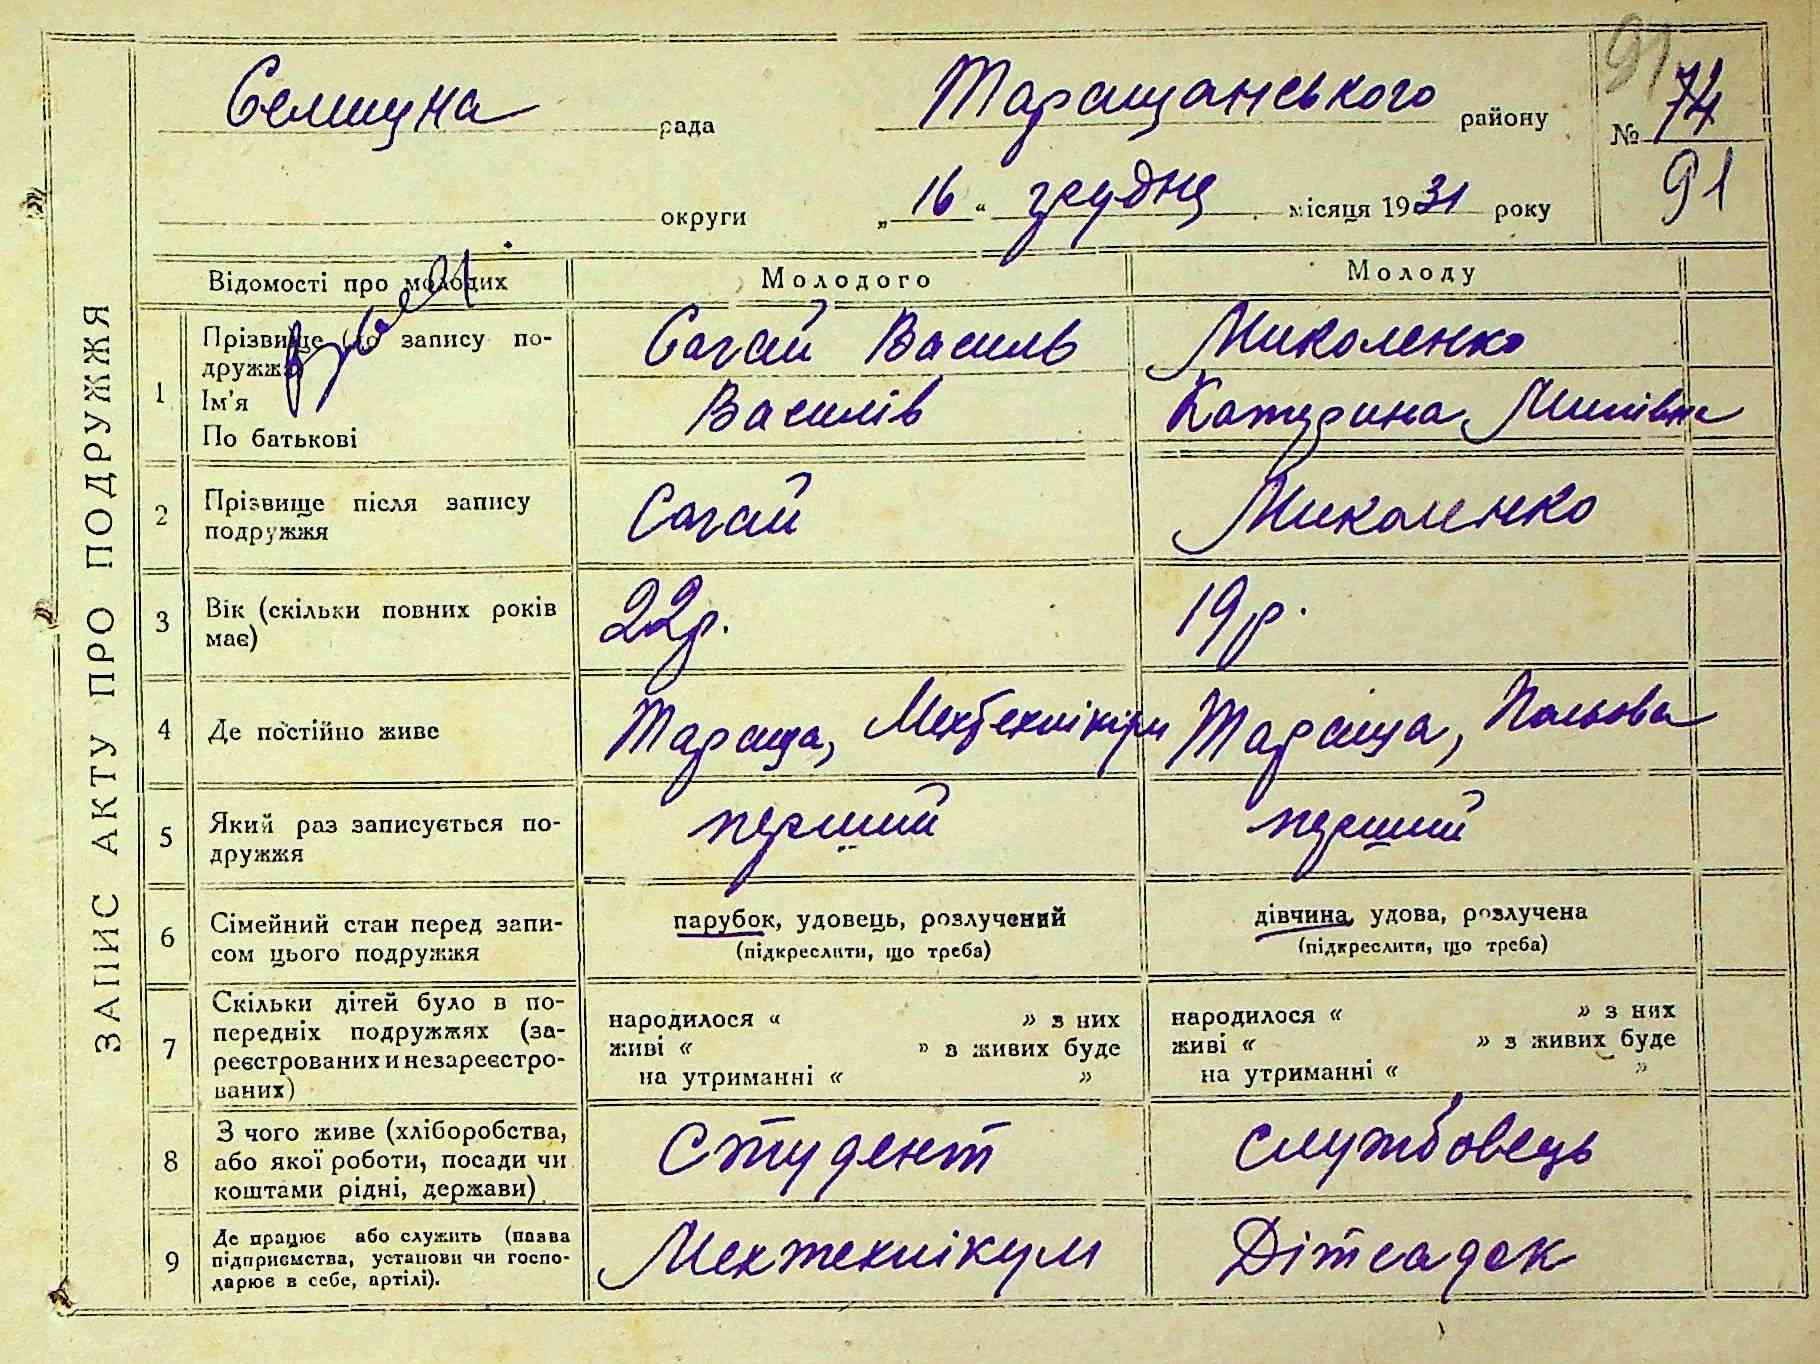 ЗАПИС АКТУ ПРО ПОДРУЖЖЯ
Селищна рада Таращанського району № 74
91
округи „16“ грудня місяця 1931 року 91
Відомості про молодих Молодого Молоду
1 Прізвище до запису по-
дружжя
Ім'я
По батькові
Сагай Василь
Василів
Миколенко
Катерина Милівна
2 Прізвище після запису
подружжя
Сагай Миколенко
3 Вік (скільки повних років
має)
22р. 19р.
4 Де постійно живе Тараща, Мехтехнікум Тараща, Польова
5 Який раз записується по-
дружжя
перший перший
6 Сімейний стан перед запи-
сом цього подружжя
парубок, удовець, розлучений
(підкреслити, що треба)
дівчина, удова, розлучена
(підкреслити, що треба)
7 Скільки дітей було в по-
передніх подружжях (за-
реєстрованих и незареєстро-
ваних)
народилося “ » з них
живі “ » в живих буде
на утриманні “ »
народилося “ » з них
живі “ » з живих буде
на утриманні “ »
8 З чого живе (хліборобства,
або якої роботи, посади чи
коштами рідні, держави)
Студент службовець
9 Де працює або служить (назва
підприємства, установи чи госпо-
дарює в себе, артілі).
Мехтехнікум Дітсадок